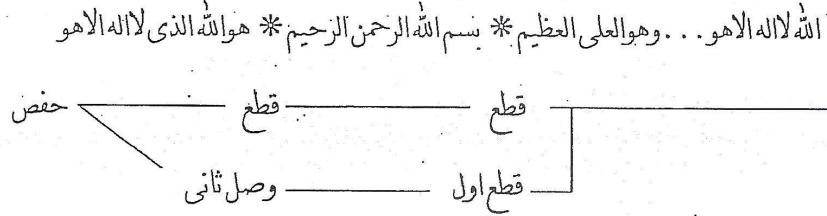 الله لا اله الا هو . . . وهو العلى العظيم * بسم الله الرحمن الرحيم * هو الله الذى لا اله الا هو
قطع قطع حفص
قطع اول وصل ثانى